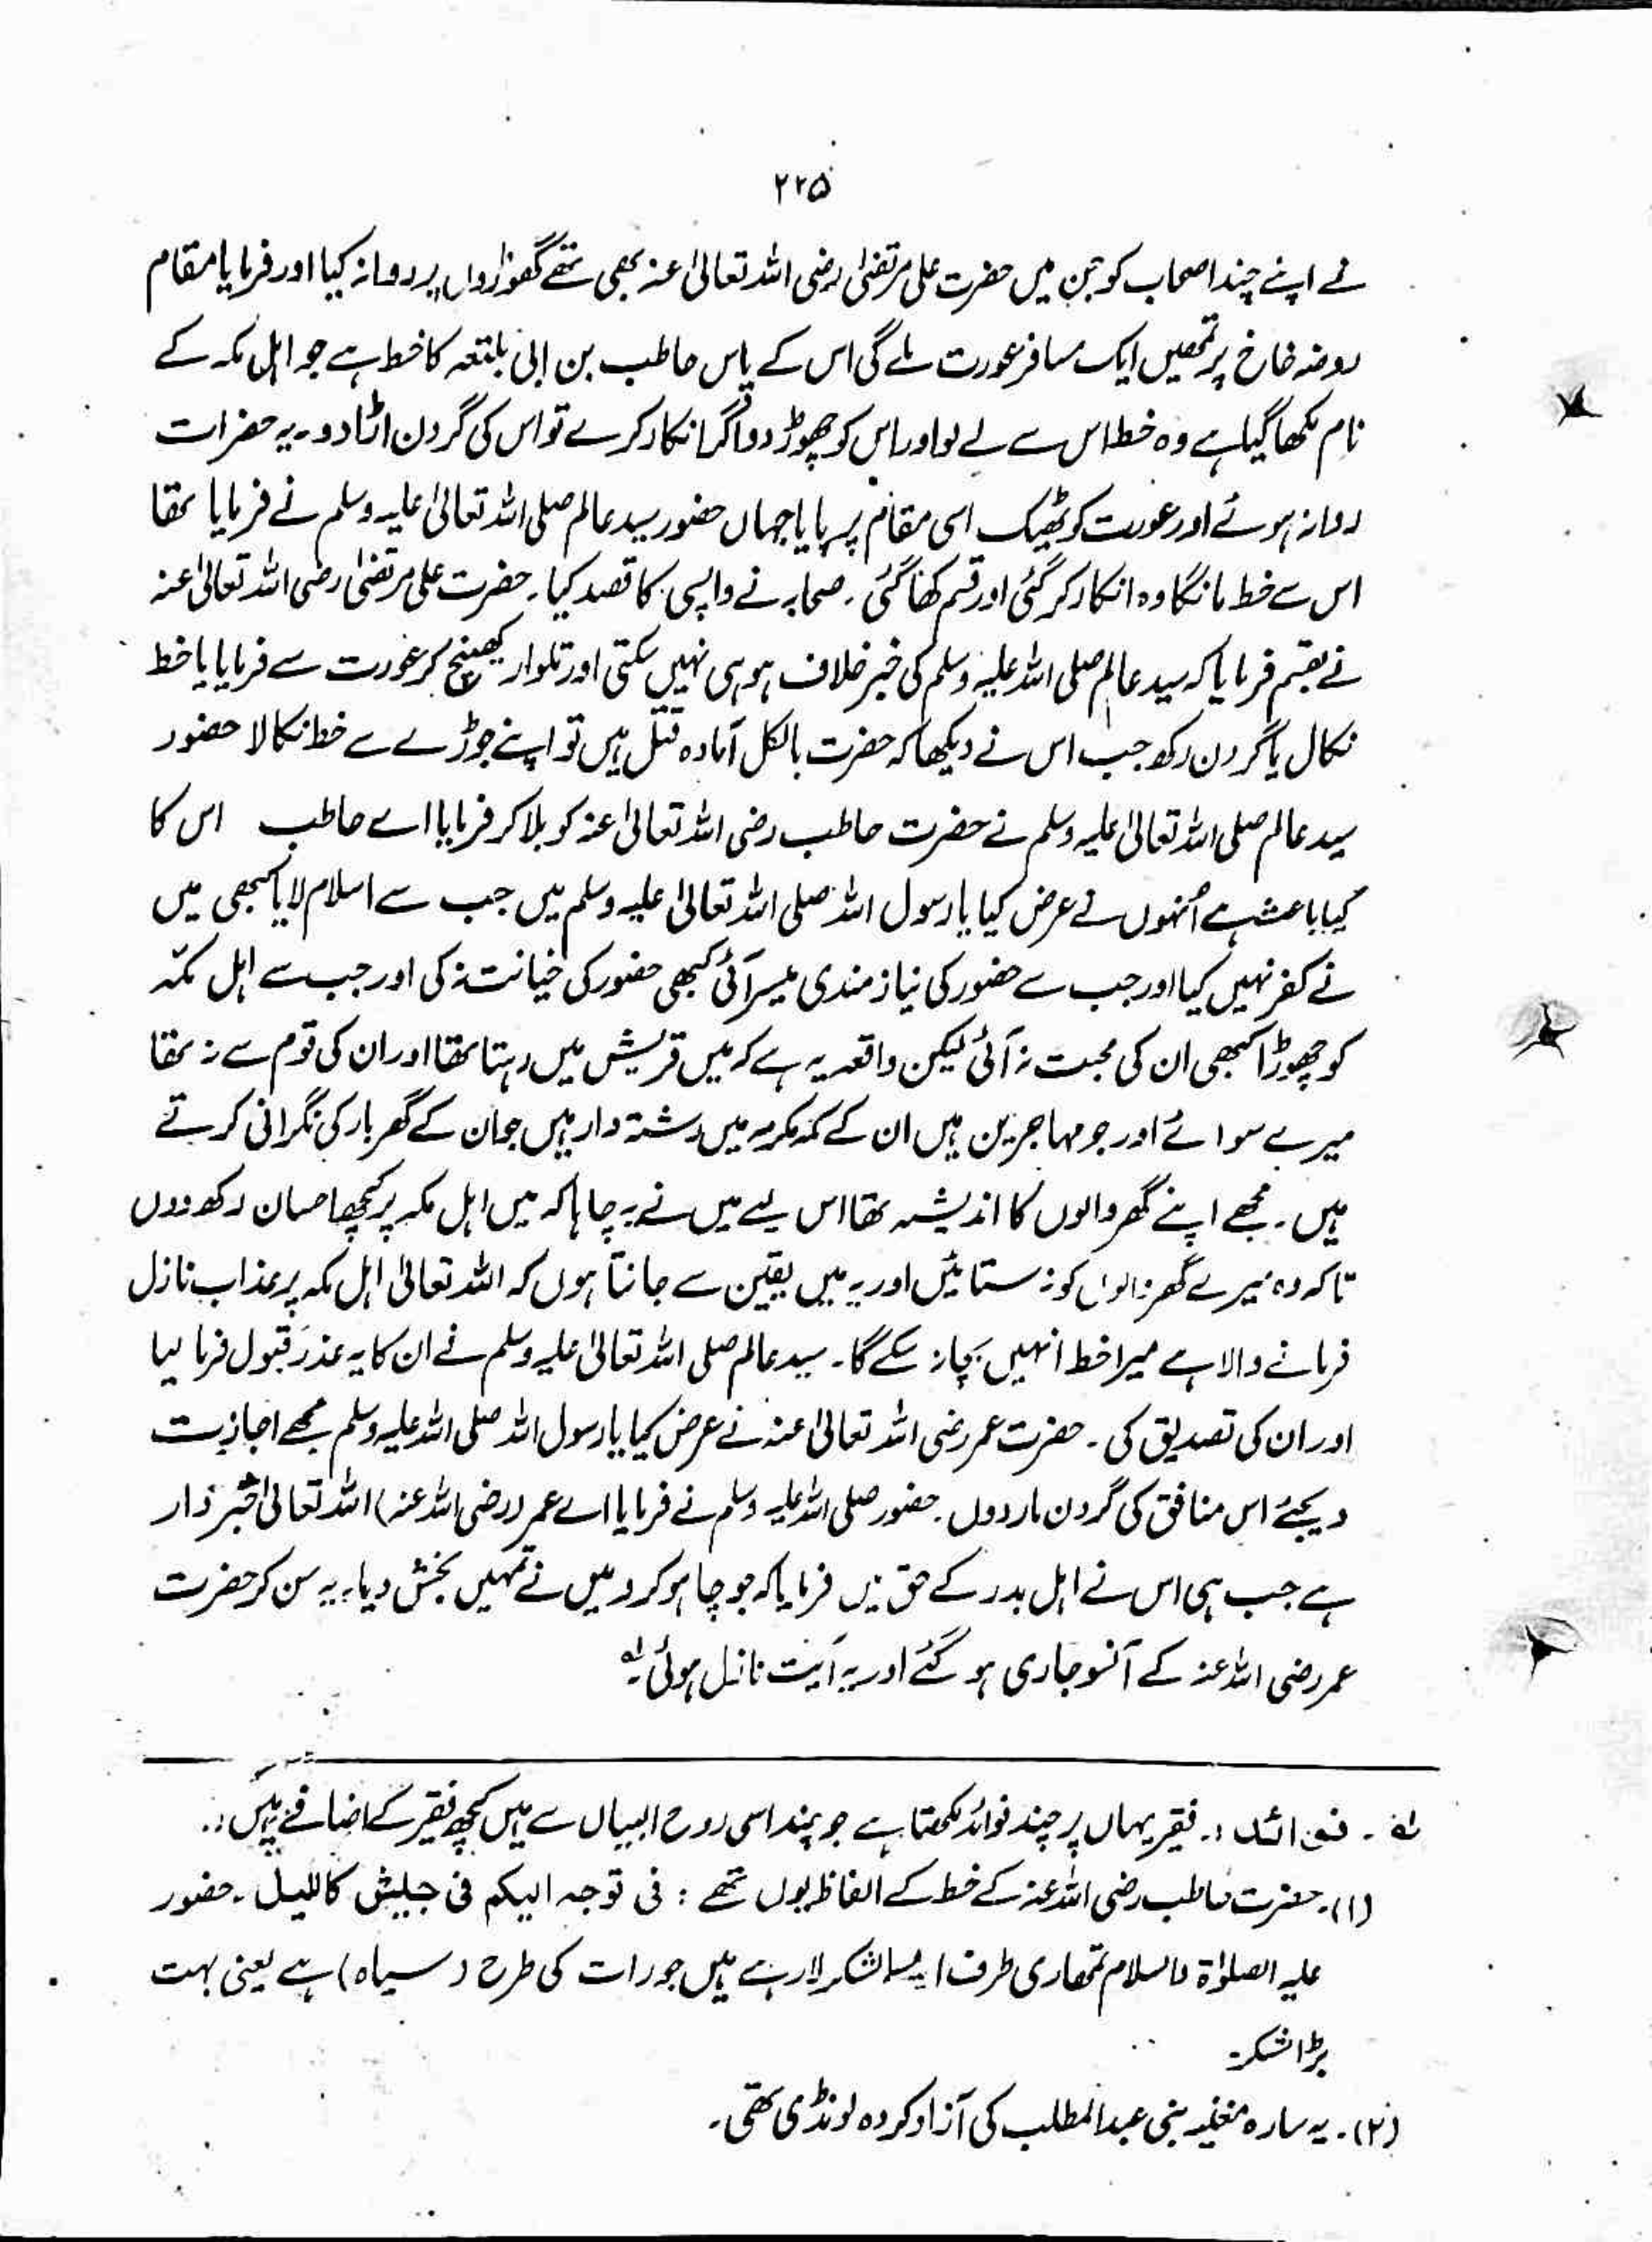 ۲۲۵
نے اپنے چند اصحاب کو جن میں حضرت علی مرتضیٰ رضی اللہ تعالیٰ عنہ بھی تھے گھوڑوں پر روانہ کیا اور فرمایا مقام
روضہ خاخ پر تمھیں ایک مسافر عورت ملے گی اس کے پاس حاطب بن ابی بلتعہ کا خط ہے جو اہل مکہ کے
نام لکھا گیا ہے وہ خط اس سے لے لو اور اس کو چھوڑ دو اگر انکار کرے تو اس کی گردن اڑا دو۔ یہ حضرات
روانہ ہوئے اور عورت کو ٹھیک اسی مقام پر پایا جہاں حضور سید عالم صلی اللہ تعالیٰ علیہ وسلم نے فرمایا تھا
اس سے خط مانگا وہ انکار کر گئی اور قسم کھا گئی۔ صحابہ نے واپسی کا قصد کیا۔ حضرت علی مرتضیٰ رضی اللہ تعالیٰ عنہ
نے بقسم فرمایا کہ سید عالم صلی اللہ علیہ وسلم کی خبر خلاف ہو ہی نہیں سکتی اور تلوار کھینچ کر عورت سے فرمایا یا خط
نکال یا گردن رکھ جب اس نے دیکھا کہ حضرت بالکل آمادہ قتل ہیں تو اپنے جوڑے سے خط نکالا حضور
سید عالم صلی اللہ تعالیٰ علیہ وسلم نے حضرت حاطب رضی اللہ تعالیٰ عنہ کو بلا کر فرمایا اے حاطب اس کا
کیا باعث ہے اُنہوں نے عرض کیا یا رسول اللہ صلی اللہ تعالیٰ علیہ وسلم میں جب سے اسلام لایا کبھی میں
نے کفر نہیں کیا اور جب سے حضور کی نیاز مندی میسر آئی کبھی حضور کی خیانت نہ کی اور جب سے اہل مکّہ
کو چھوڑا کبھی ان کی محبت نہ آئی لیکن واقعہ یہ ہے کہ میں قریش میں رہتا تھا اور ان کی قوم سے نہ تھا
میرے سوائے اور جو مہاجرین ہیں ان کے مکہ مکرمہ میں رشتہ دار ہیں جو ان کے گھر بار کی نگرانی کرتے
ہیں۔ مجھے اپنے گھر والوں کا اندیشہ تھا اس لیے میں نے یہ چاہا کہ میں اہل مکہ پر کچھ احسان رکھ دوں
تاکہ وہ میرے گھر والوں کو نہ ستائیں اور یہ میں یقین سے جانتا ہوں کہ اللہ تعالیٰ اہل مکہ پر عذاب نازل
فرمانے والا ہے میرا خط انہیں بچا نہ سکے گا۔ سید عالم صلی اللہ تعالیٰ علیہ وسلم نے ان کا یہ عذر قبول فرما لیا
اور ان کی تصدیق کی۔ حضرت عمر رضی اللہ تعالیٰ عنہ نے عرض کیا یا رسول اللہ صلی اللہ علیہ وسلم مجھے اجازت
دیجئے اس منافق کی گردن مار دوں۔ حضور صلی اللہ علیہ وسلم نے فرمایا اے عمر (رضی اللہ عنہ) اللہ تعالیٰ خبردار
ہے جب ہی اس نے اہل بدر کے حق میں فرمایا کہ جو چاہو کرو میں نے تمہیں بخش دیا۔ یہ سن کر حضرت
عمر رضی اللہ عنہ کے آنسو جاری ہو گئے اور یہ آیت نازل ہوئی۔ لہ
لہ۔ فوائد :۔ فقیر یہاں پر چند فوائد لکھتا ہے جو چند اسی روح البیان سے ہیں کچھ فقیر کے اضافے ہیں :۔
(۱)۔ حضرت حاطب رضی اللہ عنہ کے خط کے الفاظ یوں تھے : فی توجہ الیکم فی جیش کاللیل۔ حضور
علیہ الصلوٰۃ والسلام تمھاری طرف ایسا لشکر لا رہے ہیں جو رات کی طرح (سیاہ) ہے یعنی بہت
بڑا لشکر
(۲)۔ یہ سارہ مغنیہ بنی عبدالمطلب کی آزاد کردہ لونڈی تھی۔